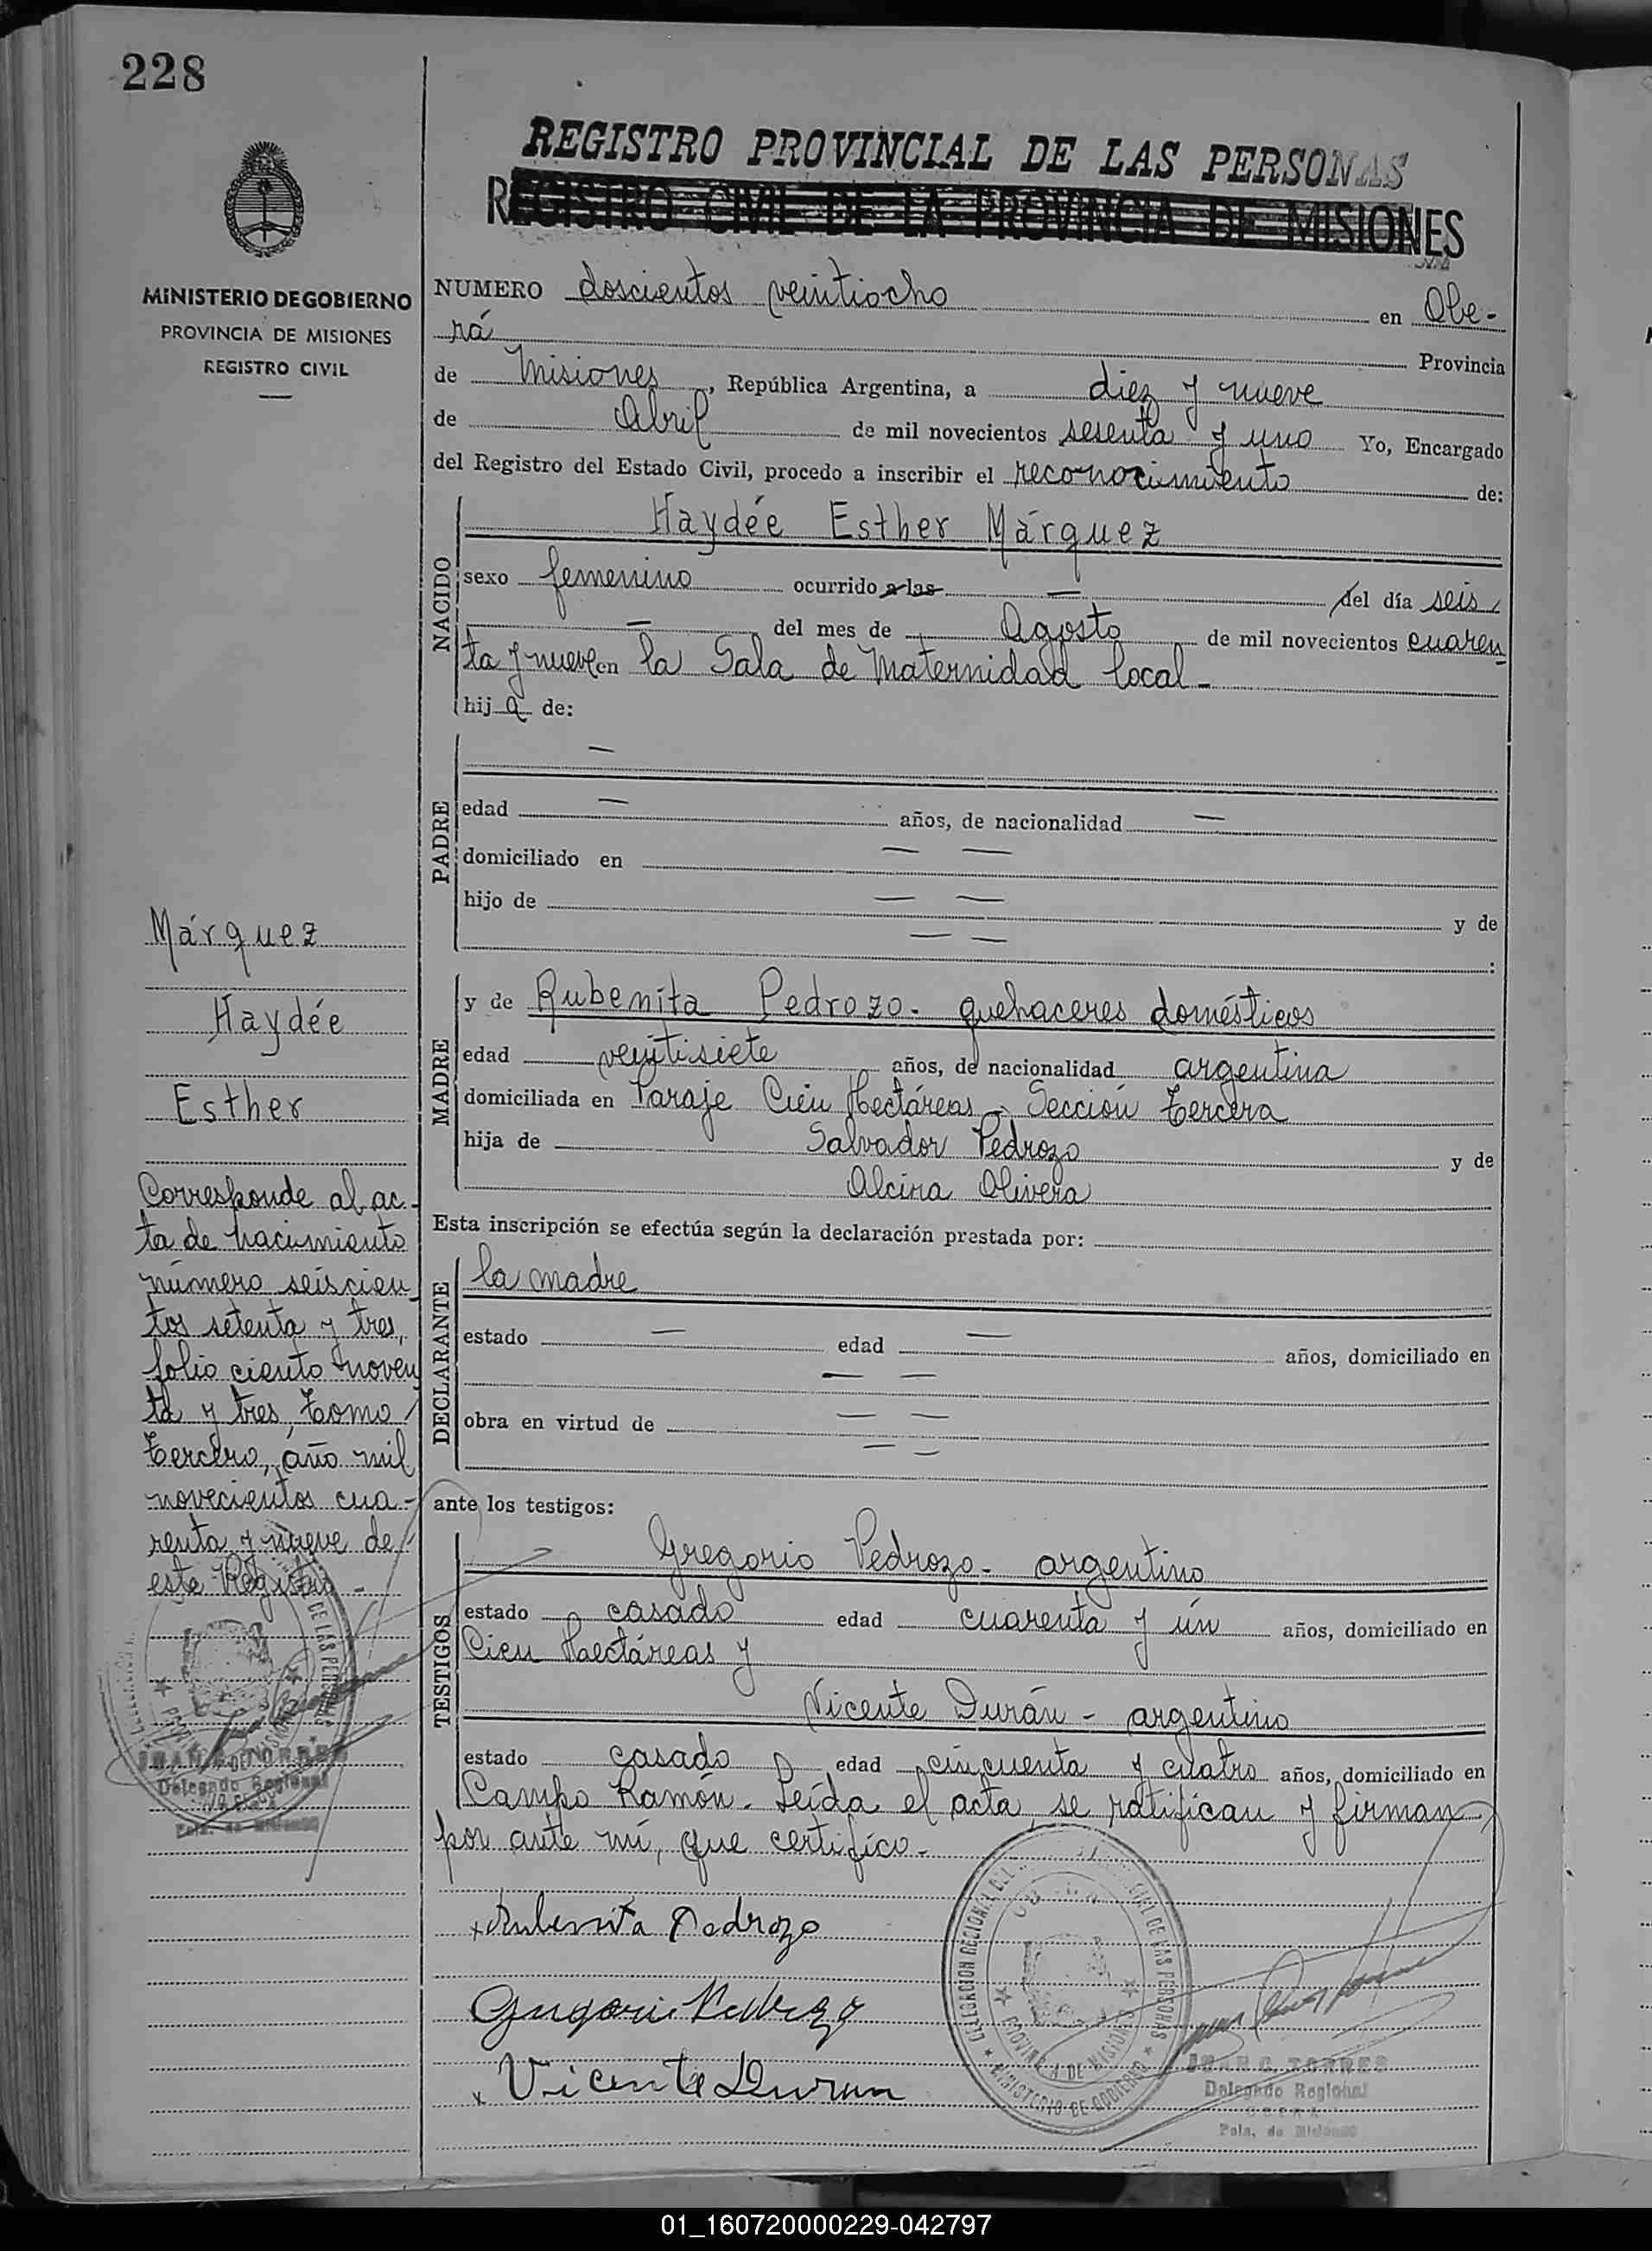 228
REGISTRO PROVINCIAL DE LAS PERSONAS
REGISTRO CIVIL DE LA PROVINCIA DE MISIONES
MINISTERIO DE GOBIERNO
PROVINCIA DE MISIONES
REGISTRO CIVIL
NUMERO doscientos veintiocho en Obe-
rá Provincia
de Misiones, República Argentina, a diez y nueve
de Abril de mil novecientos sesenta y uno Yo, Encargado
del Registro del Estado Civil, procedo a inscribir el reconocimiento de:
NACIDO
Haydée Esther Márquez
sexo femenino ocurrido a las — del día seis
— del mes de Agosto de mil novecientos cuaren
ta y nueve en la Sala de Maternidad local-
hij a de:
PADRE
—
edad — años, de nacionalidad —
domiciliado en — —
hijo de — — y de
— — :
MADRE
y de Rubenita Pedrozo. quehaceres domésticos
edad veintisiete años, de nacionalidad argentina
domiciliada en Paraje Cien Hectáreas - Sección Tercera
hija de Salvador Pedrozo y de
Alcira Olivera
Esta inscripción se efectúa según la declaración prestada por:
DECLARANTE
la madre
estado — edad — años, domiciliado en
— —
obra en virtud de — —
— —
ante los testigos:
TESTIGOS
Gregorio Pedrozo - argentino
estado casado edad cuarenta y ún años, domiciliado en
Cien Hectáreas y
Vicente Durán - argentino
estado casado edad cincuenta y cuatro años, domiciliado en
Campo Ramón. Leída el acta se ratifican y firman
por ante mí, que certifico.
Márquez
Haydée
Esther
Corresponde al ac-
ta de nacimiento
número seiscien
tos setenta y tres,
folio ciento noven
ta y tres, Tomo
Tercero, año mil
novecientos cua-
renta y nueve de
este Registro -
JUAN C. TORRES
Delegado Regional
Pcia. de Misiones
Rubenita Pedrozo
Gregorio Pedrozo
Vicente Duran
DELEGACION REGIONAL DEL DE LAS PERSONAS
PROVINCIA DE MISIONES
MINISTERIO DE GOBIERNO
JUAN C. TORRES
Delegado Regional
OBERA
Pcia. de Misiones
01_160720000229-042797